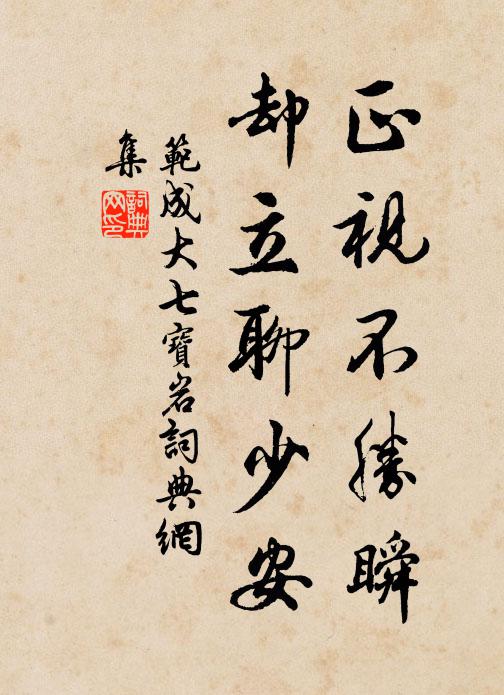 正視不勝瞬
却立聊少安
範成大七寶岩詞典網
集
詞典
网印